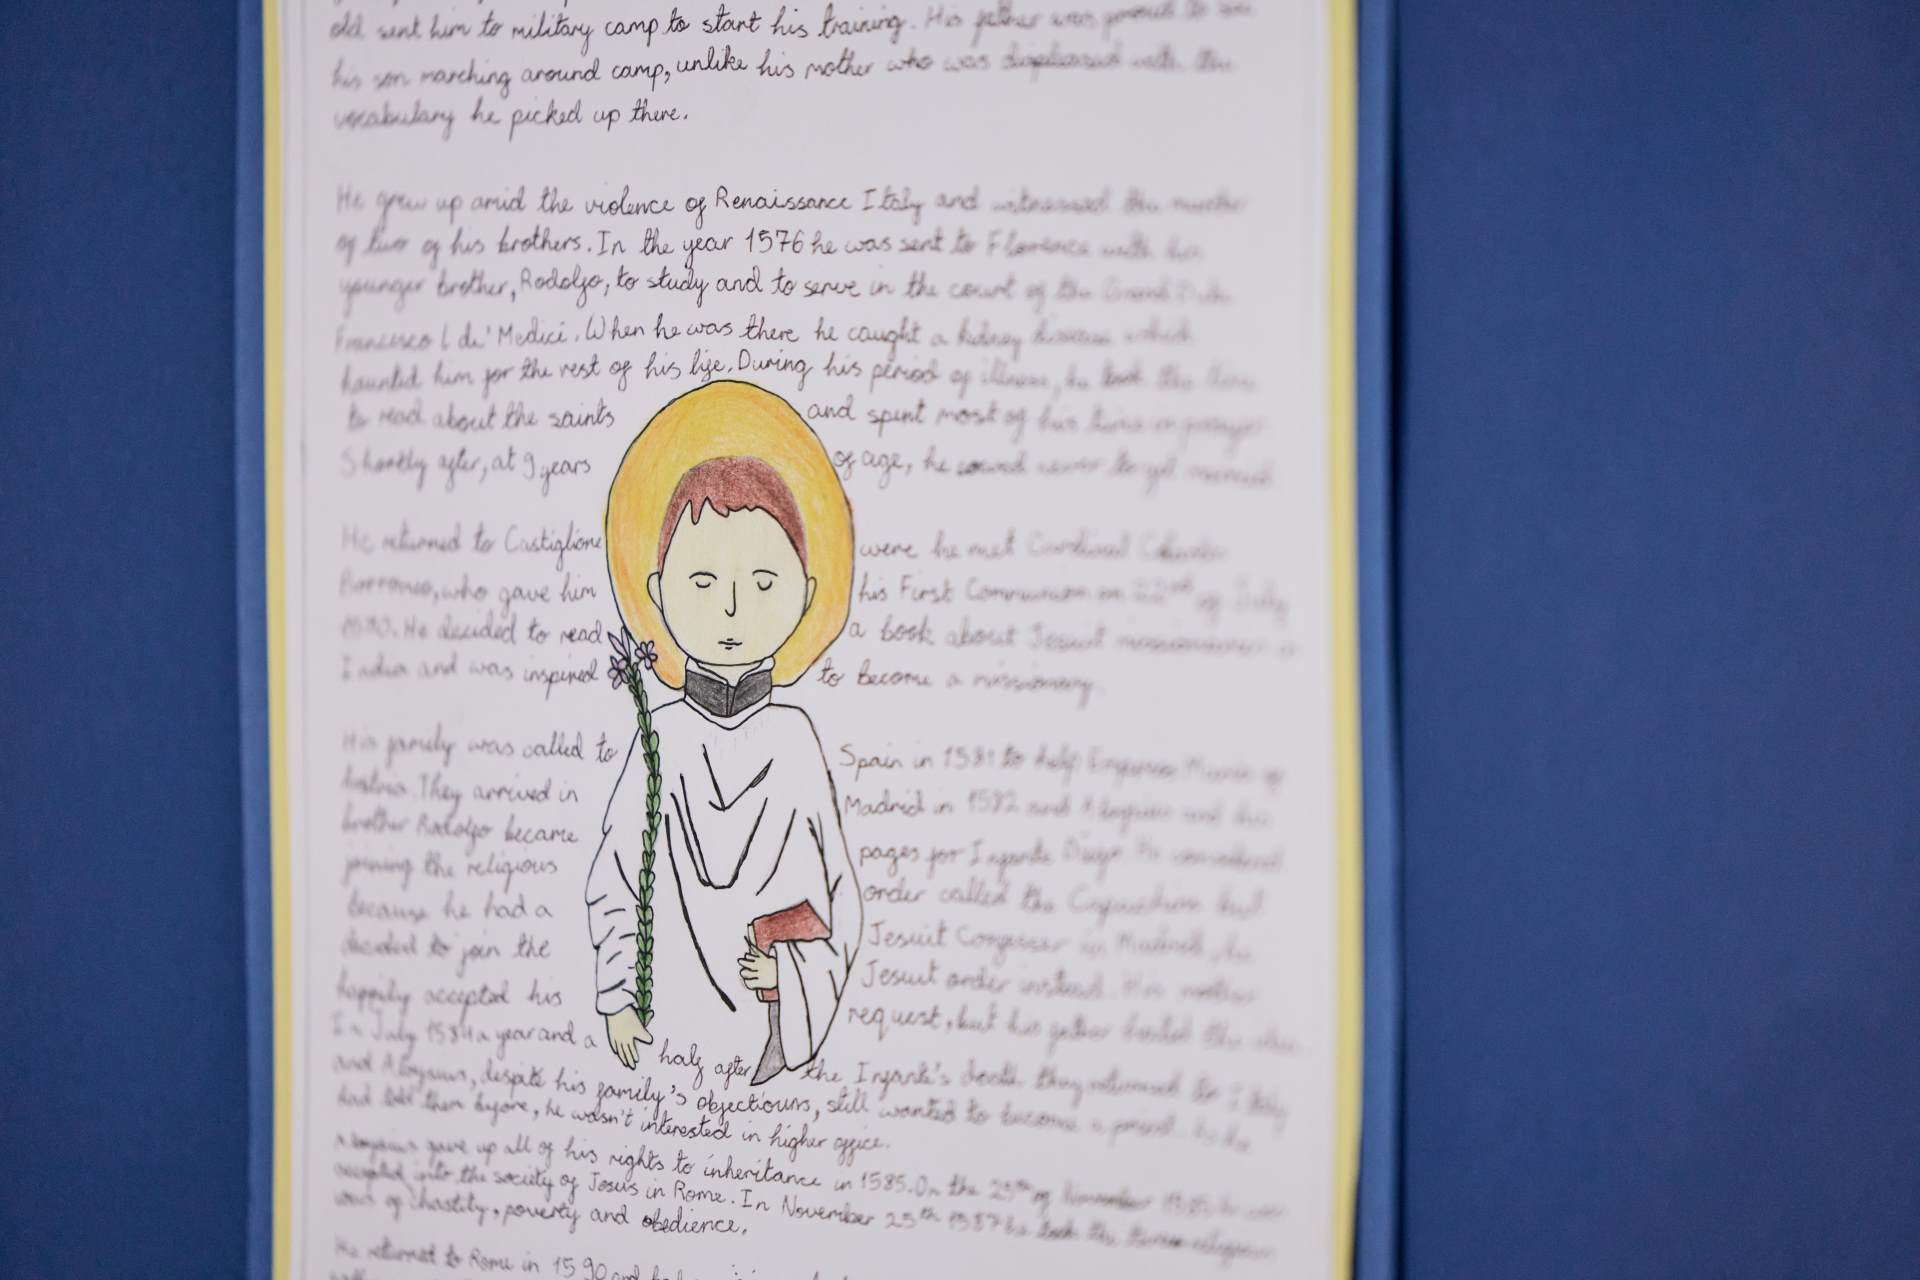 old sent him to military camp to start his training. His father was proud to see
his son marching around camp, unlike his mother who was displeased with the
vocabulary he picked up there.
He grew up amid the violence of Renaissance Italy and witnessed the murder
of two of his brothers. In the year 1576 he was sent to Florence with his
younger brother, Rodolfo, to study and to serve in the court of the Grand Duke
Francesco I de' Medici. When he was there he caught a kidney disease which
haunted him for the rest of his life. During his period of illness, he took the time
to read about the saints and spent most of his time in prayer
Shortly after, at 9 years of age, he vowed never to get married
He returned to Castiglione were he met Cardinal Charles
Borromeo, who gave him his First Communion on 22nd of July
1580. He decided to read a book about Jesuit missionaries in
India and was inspired to become a missionary.
His family was called to Spain in 1581 to help Empress Maria of
Austria. They arrived in Madrid in 1582 and Aloysius and his
brother Rodolfo became pages for Infante Diego. He considered
joining the religious order called the Capuchins but
because he had a Jesuit Confessor in Madrid, he
decided to join the Jesuit order instead. His mother
happily accepted his request, but his father hated the idea.
In July 1584 a year and a half after the Infante's death they returned to Italy
and Aloysius, despite his family's objectiours, still wanted to become a priest. As he
had told them before, he wasn't interested in higher office.
Aloysius gave up all of his rights to inheritance in 1585. On the 25th of November 1585 he was
accepted into the society of Jesus in Rome. In November 25th 1587 he took the three religious
vows of chastity, poverty and obedience.
He returned to Rome in 1590 and